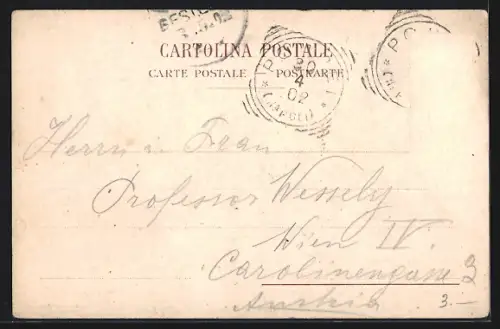 BESTELLT
CARTOLINA POSTALE
CARTE POSTALE POSTKARTE
20
4
02
(NAPOLI)
Herrn u Frau
Professor Wessely
Wien IV.
Carolinengasse
Austria
3.—